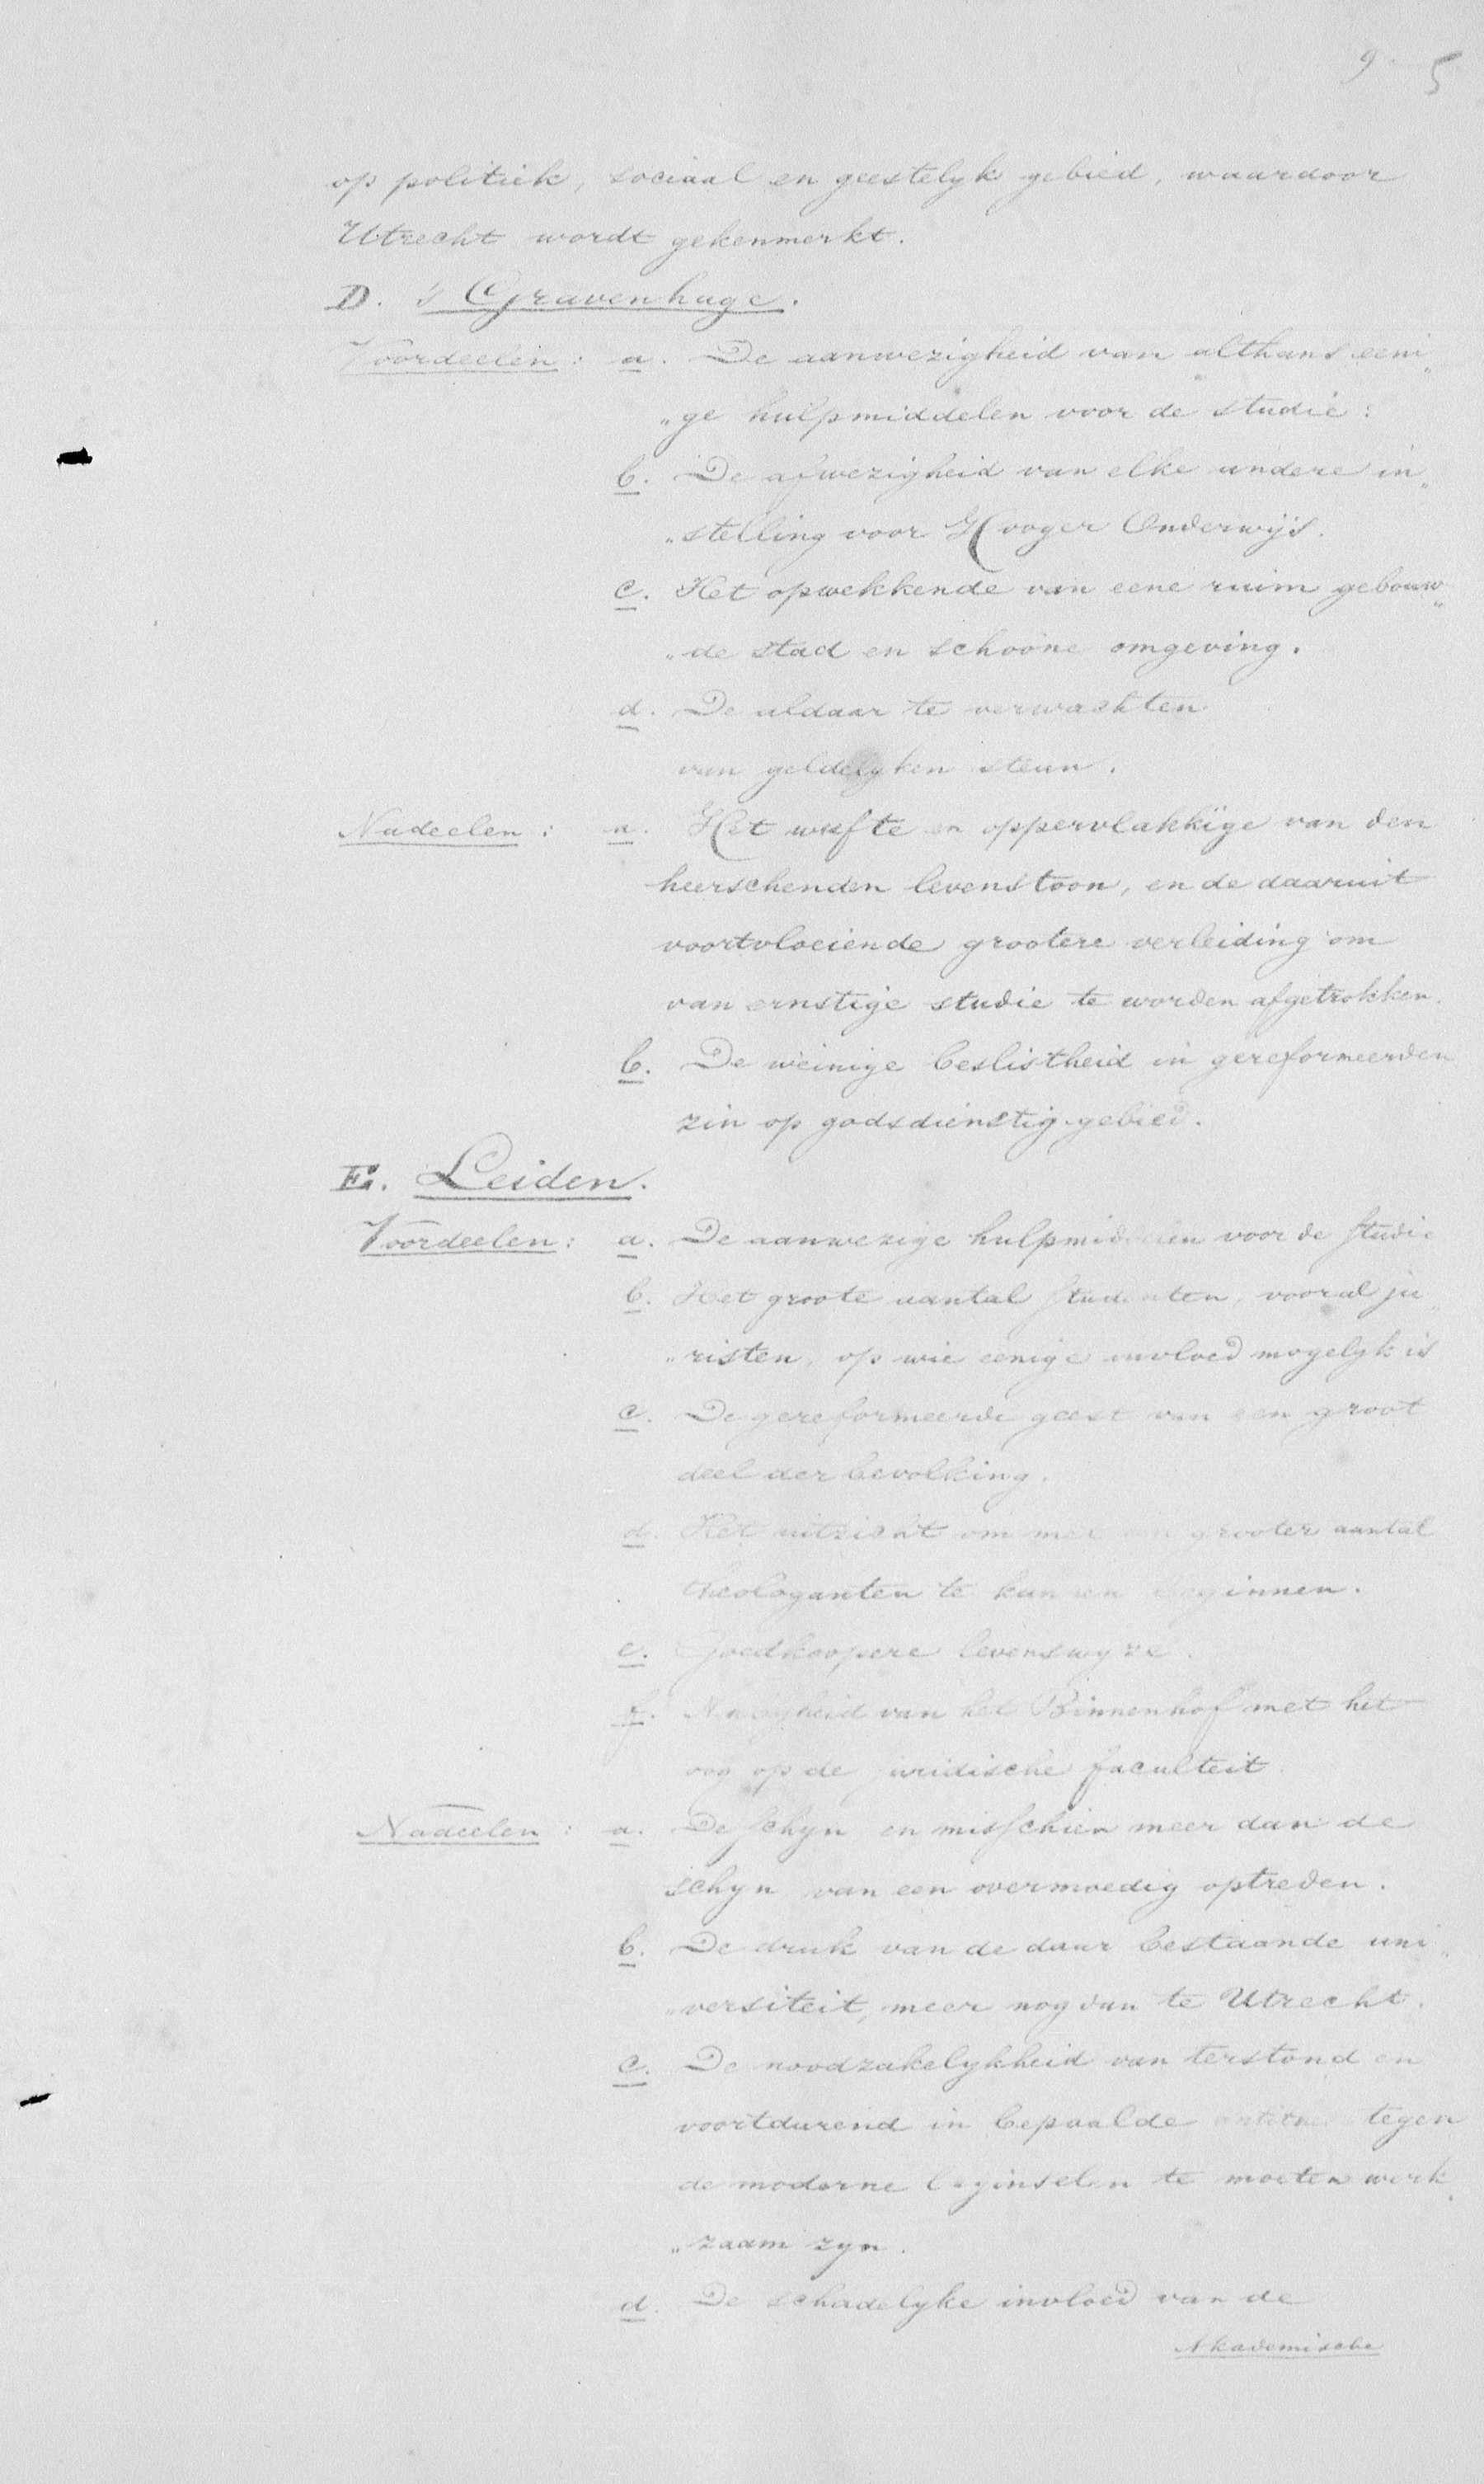 9 5
op politiek, sociaal en geestelyk gebied, waardoor
Utrecht wordt gekenmerkt.
D. 's Gravenhage.
Voordeelen: a. De aanwezigheid van althans eeni„
„ge hulpmiddelen voor de studie:
b. De afwezigheid van elke andere in„
„stelling voor Hooger Onderwijs.
c. Het opwekkende van eene ruim gebouw„
„de stad en schoone omgeving.
d. De aldaar te verwachten
van geldelyken steun.
Nadeelen: a. Het wufte en oppervlakkige van den
heerschenden levenstoon, en de daaruit
voortvloeiende grootere verleiding om
van ernstige studie te worden afgetrokken.
b. De weinige beslistheid in gereformeerden
zin op godsdienstig gebied.
E. Leiden.
Voordeelen: a. De aanwezige hulpmiddelen voor de studie
b. Het groote aantal studenten, vooral ju„
„risten, op wie eenige invloed mogelyk is
c. De gereformeerde geest van een groot
deel der bevolking.
d. Het uitzicht om met een grooter aantal
theologanten te kunnen beginnen.
e. Goedkoopere levenswyze.
f. Nabyheid van het Binnenhof met het
oog op de juridische faculteit.
Nadeelen: a. De schyn en misschien meer dan de
schyn van een overmoedig optreden.
b. De druk van de daar bestaande uni„
„versiteit, meer nog dan te Utrecht.
c. De noodzakelykheid van terstond en
voortdurend in bepaalde tegen
de moderne beginselen te moeten werk„
„zaam zyn.
d. De schadelyke invloed van de
Akademische